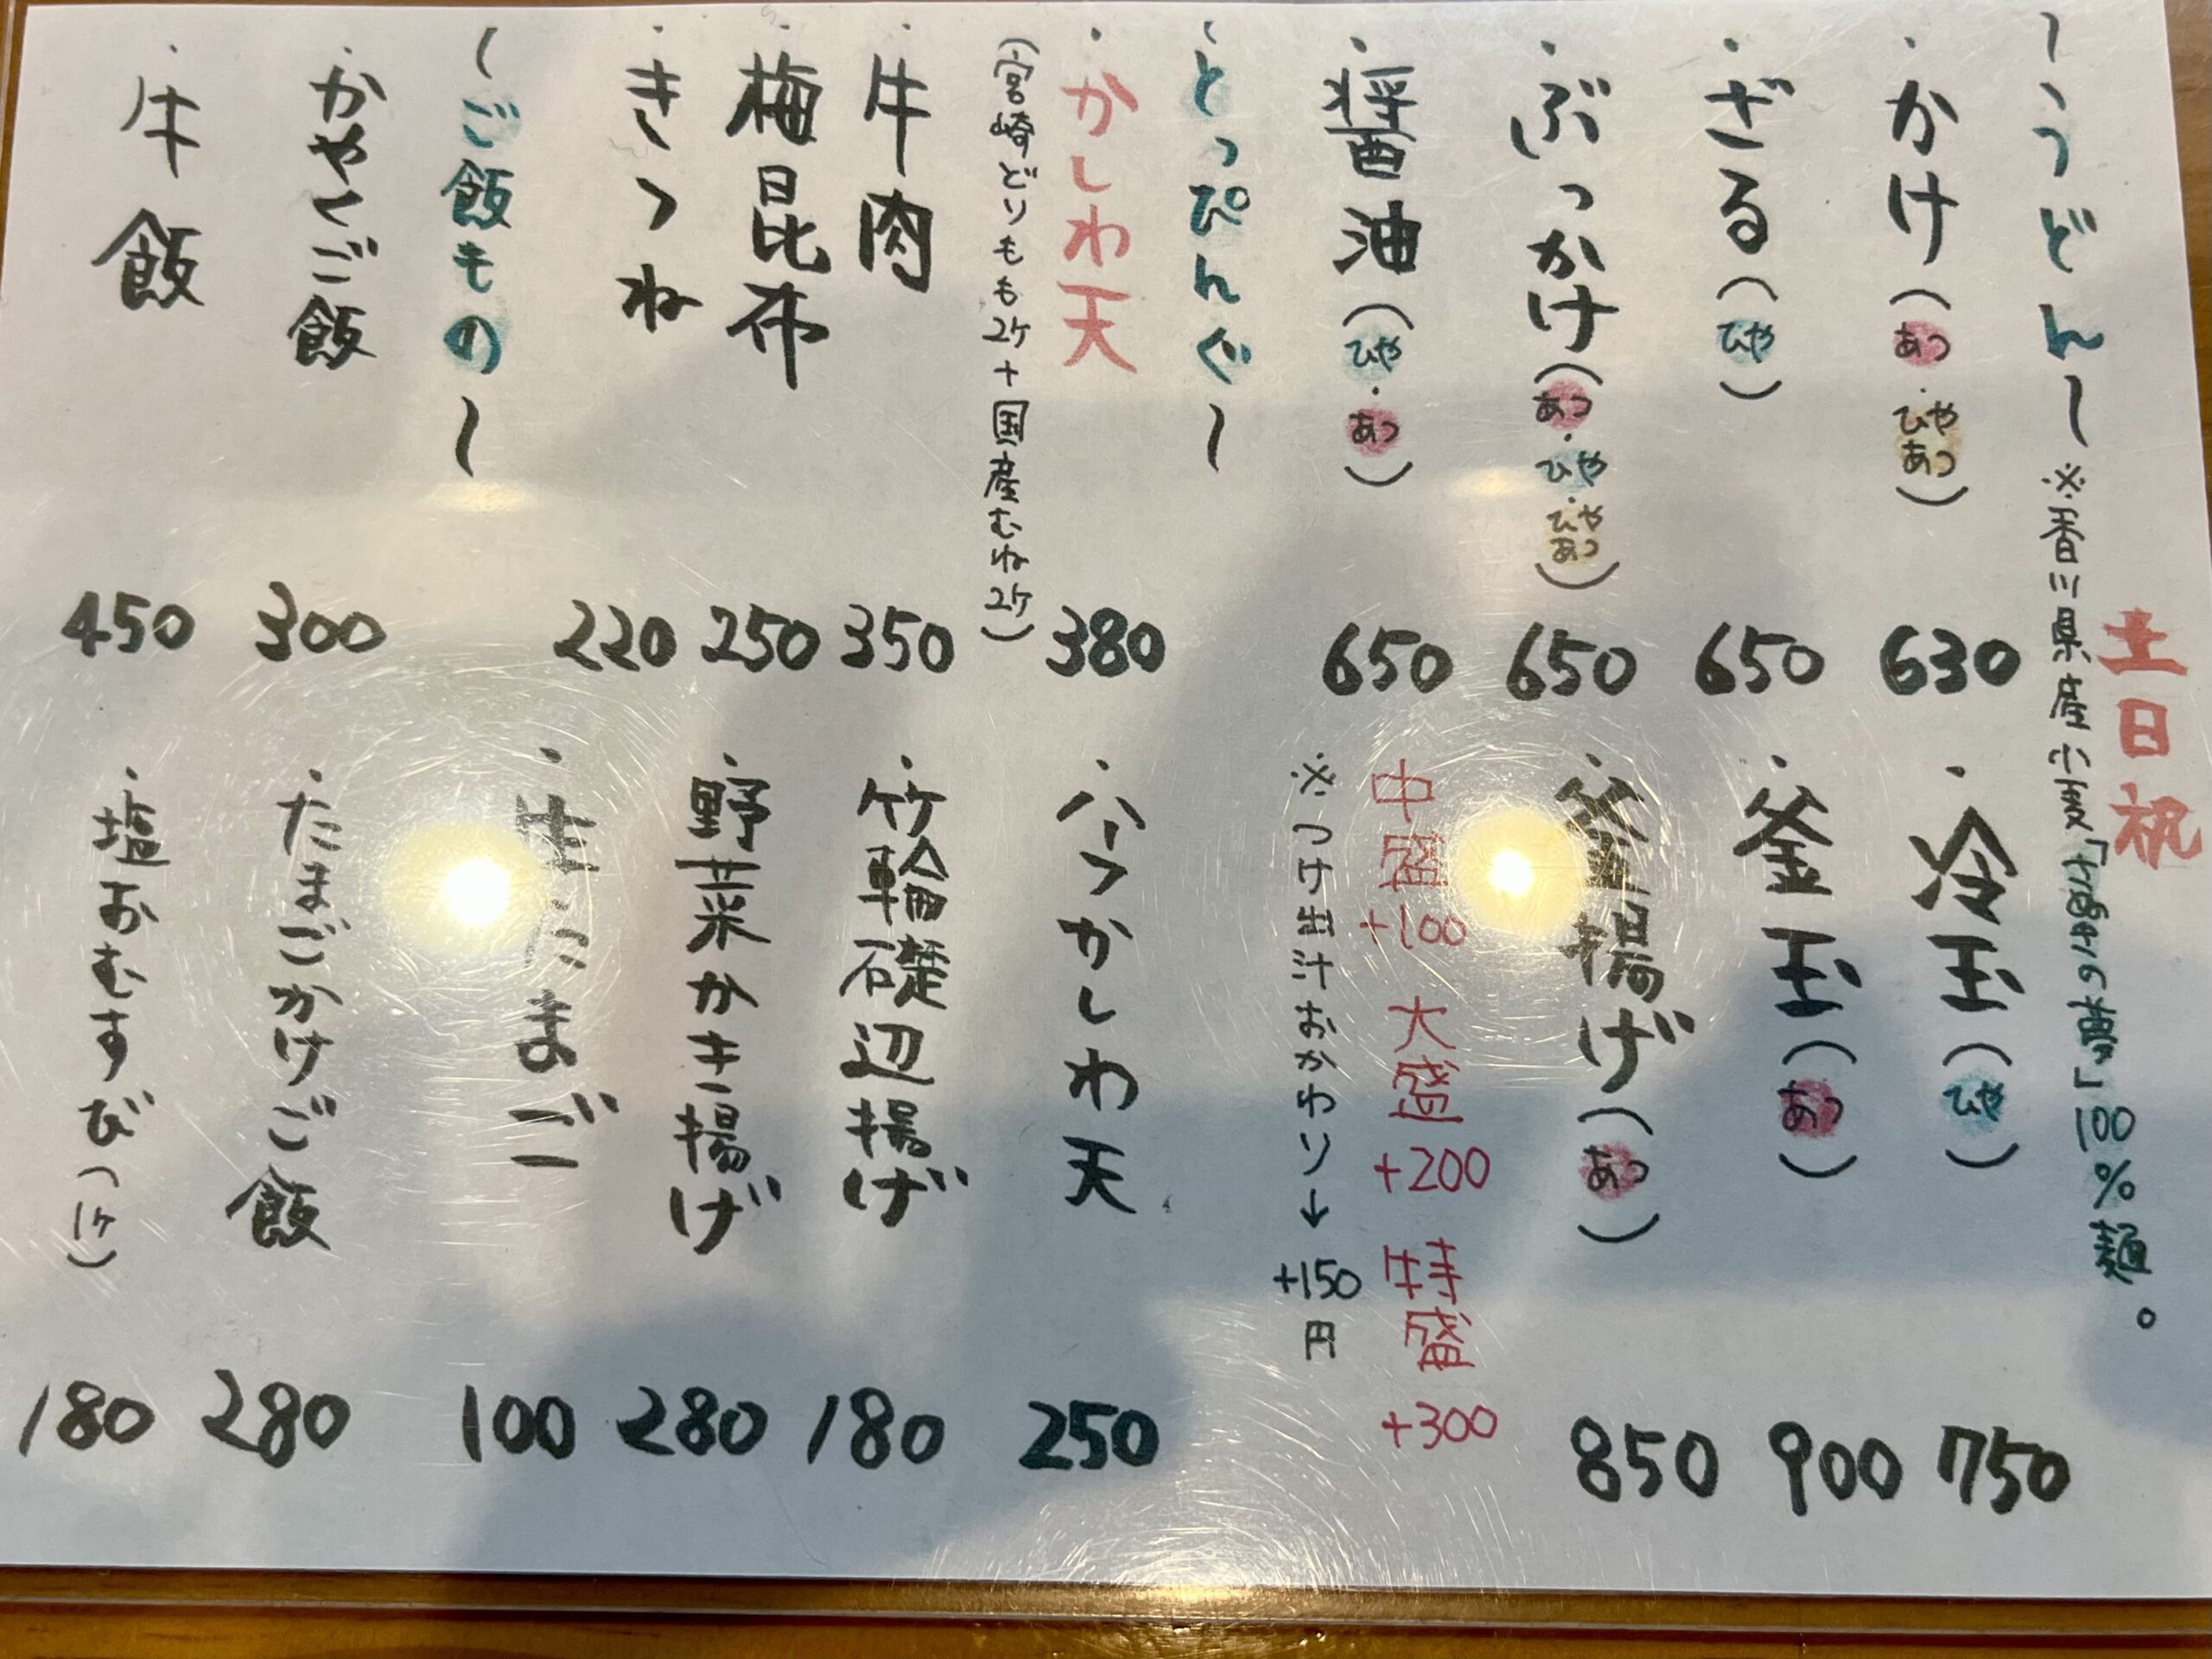 土日祝
〜うどん〜 ※香川県産小麦「さぬきの夢」100%麺。
・かけ(あつ・ひやあつ) 630
・ざる(ひや) 650
・ぶっかけ(あつ・ひや・ひやあつ) 650
・醤油(ひや・あつ) 650
・冷玉(ひや) 750
・釜玉(あつ) 900
・釜揚げ(あつ) 850
中盛+100 大盛+200 特盛+300
※つけ出汁おかわり→+150円
〜とっぴんぐ〜
・かしわ天 380
(宮崎どりもも2ケ+国産むね2ケ)
・牛肉 350
・梅昆布 250
・きつね 220
・ハーフかしわ天 250
・竹輪礒辺揚げ 180
・野菜かき揚げ 280
・生たまご 100
〜ご飯もの〜
・かやくご飯 300
・牛飯 450
・たまごかけご飯 280
・塩おむすび(1ケ) 180